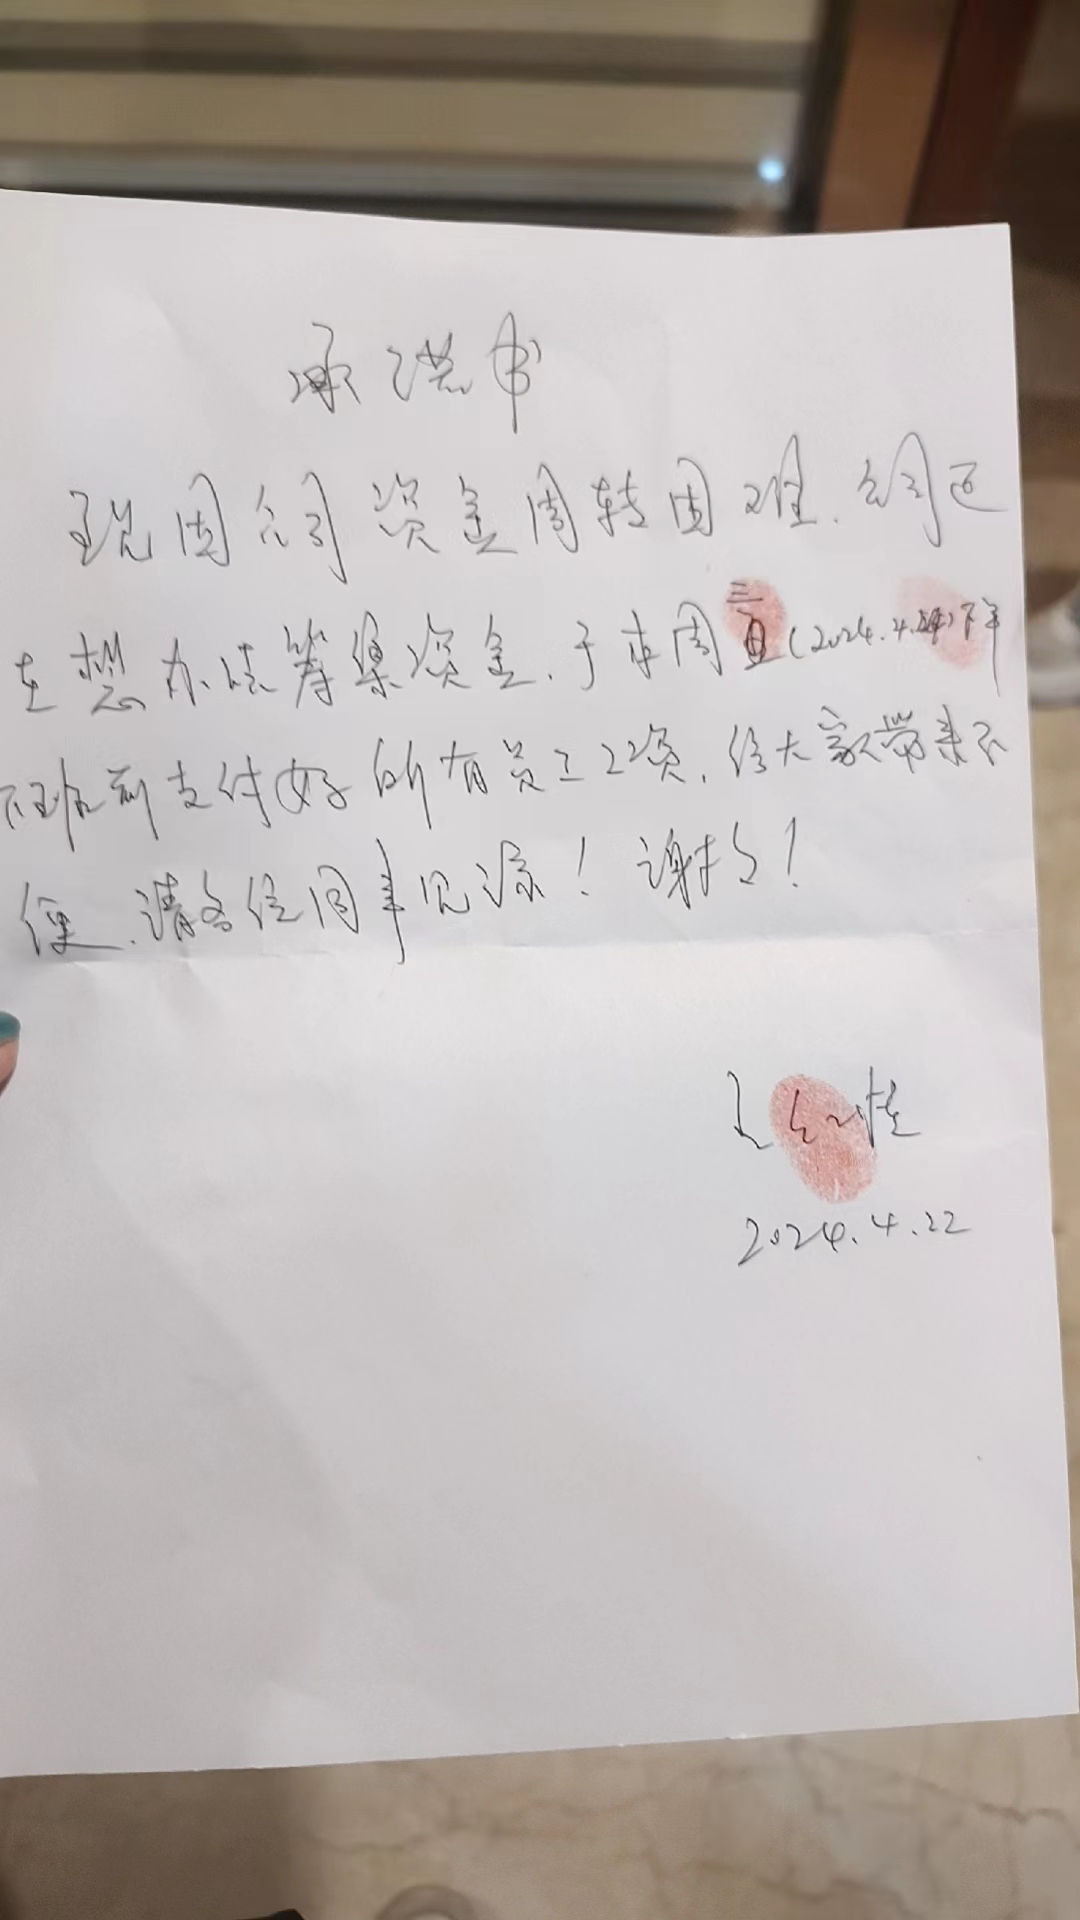 承诺书
现因公司资金周转困难,公司正
在想办法筹集资金,于本周三(2024.4.24)下午
下班前支付好所有员工工资,给大家带来不
便,请各位同事见谅!谢谢!
2024.4.22